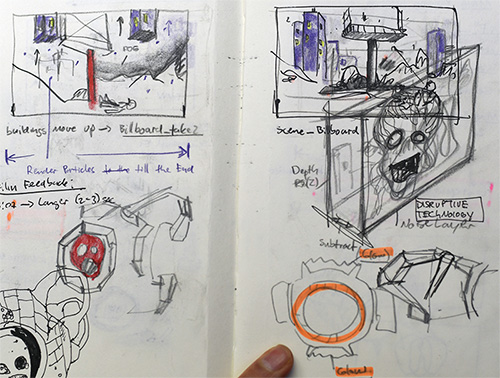 FOG
buildings move up → Billboard_take2
Render Particles to the till the End
Film Feedback:
→ Longer (2-3) sec
Scene_Billboard
Depth
DISRUPTIVE
TECHNOLOGY
Subtract